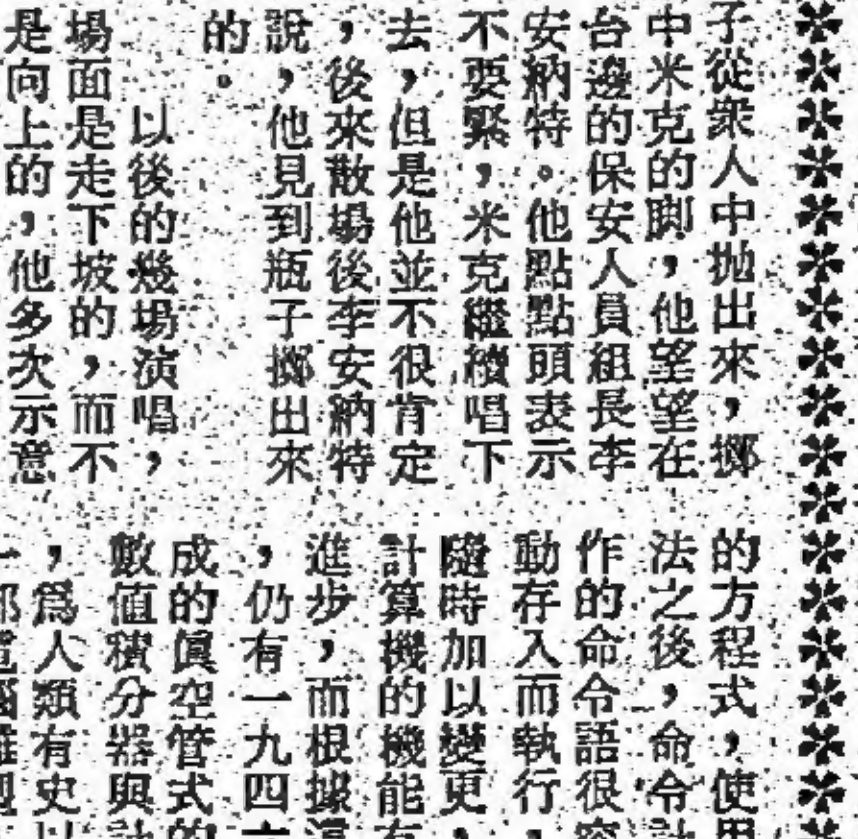 子從衆人中拋出來，擲
中米克的脚，他望望在
台邊的保安人員組長李
安納特。他點點頭表示
不要緊，米克繼續唱下
去，但是他並不很肯定
，後來散場後李安納特
說，他見到瓶子擲出來
的。
以後的幾場演唱，
場面是走下坡的，而不
是向上的，他多次示意
的方程式，使用
法之後，命令計
作的命令語很容
動存入而執行，
隨時加以變更，
計算機的機能有
進步，而根據這
，仍有一九四六
成的眞空管式的
數值積分器與計
，爲人類有史以
一部電腦雖